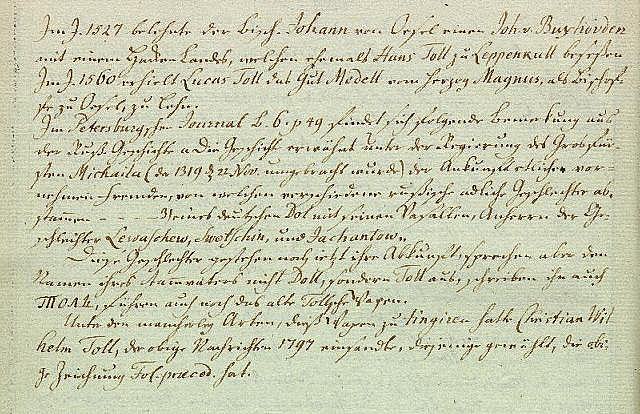 Im J. 1527 belehnte der Bisch. Johann von Oesel einen Joh. v. Buxhövden
mit einem Haden Landes, welchen ehemals Hans Toll zu Leppenkull besessen
Im J. 1560 erhielt Lucas Toll das Gut Medell vom Herzog Magnus, als Bischof
fe zu Oesel, zu Lehn.
Im Petersburgschen Journal B. 6. p 49 findet sich folgende Bemerkung aus
der Russ. Geschichte „Die Geschichte erwähnt unter der Regierung des Grosfür-
sten Michaila (der 1319 d 22 Nov. umgebracht wurde) der Ankunft etlicher vor-
nehmen Fremden, von welchen verschiedene russische adliche Geschlechter ab-
stammen - - - - eines deutschen Dol mit seinen Vasallen, Anherrn der Ge-
schlechter Lewaschew, Swetschin, und Jachantow„
Diese Geschlechter gestehen noch jetzt ihre Abkunft, sprechen aber den
Namen ihres Stamvaters nicht Doll, sondern Toll aus, schreiben ihn auch
führen auch noch das alte Tollsche Wapen.
Unter den mancherley Arten, dieses Wapen zu tingiren hatte Christian Wil
helm Toll, der obige Nachrichten 1797 einsandte, diejenige gewählt, die obi-
ge Zeichnung Fol. praeced. hat.